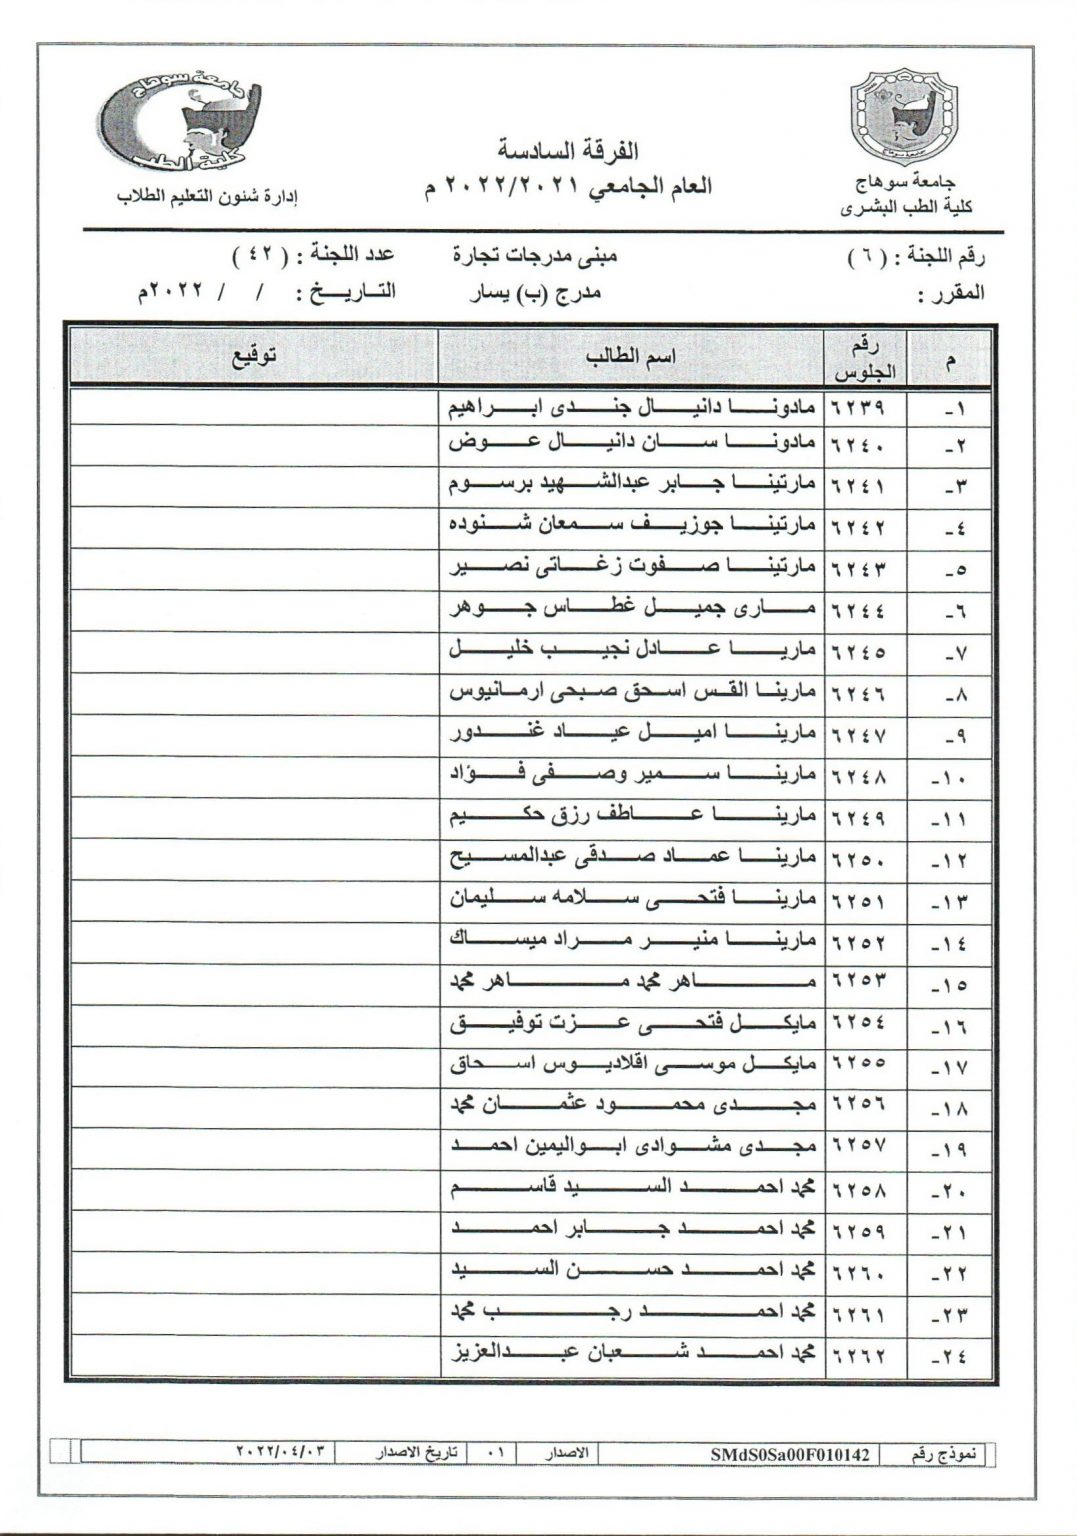 جامعة سوهاج
كلية الطب
جامعة سوهاج
كلية الطب البشرى
الفرقة السادسة
العام الجامعي ٢٠٢٢/٢٠٢١ م
إدارة شئون التعليم الطلاب
رقم اللجنة : ( ٦ ) مبنى مدرجات تجارة عدد اللجنة : ( ٤٢ )
المقرر : مدرج (ب) يسار التاريخ : / / ٢٠٢٢م
م رقم الجلوس اسم الطالب توقيع
١- ٦٢٣٩ مادونا دانيال جندى ابراهيم
٢- ٦٢٤٠ مادونا سان دانيال عوض
٣- ٦٢٤١ مارتينا جابر عبدالشهيد برسوم
٤- ٦٢٤٢ مارتينا جوزيف سمعان شنوده
٥- ٦٢٤٣ مارتينا صفوت زغاتى نصير
٦- ٦٢٤٤ مارى جميل غطاس جوهر
٧- ٦٢٤٥ ماريا عادل نجيب خليل
٨- ٦٢٤٦ مارينا القس اسحق صبحى ارمانيوس
٩- ٦٢٤٧ مارينا اميل عياد غندور
١٠- ٦٢٤٨ مارينا سمير وصفى فؤاد
١١- ٦٢٤٩ مارينا عاطف رزق حكيم
١٢- ٦٢٥٠ مارينا عماد صدقى عبدالمسيح
١٣- ٦٢٥١ مارينا فتحى سلامه سليمان
١٤- ٦٢٥٢ مارينا منير مراد ميساك
١٥- ٦٢٥٣ ماهر محمد ماهر محمد
١٦- ٦٢٥٤ مايكل فتحى عزت توفيق
١٧- ٦٢٥٥ مايكل موسى اقلاديوس اسحاق
١٨- ٦٢٥٦ مجدى محمود عثمان محمد
١٩- ٦٢٥٧ مجدى مشوادى ابواليمين احمد
٢٠- ٦٢٥٨ محمد احمد السيد قاسم
٢١- ٦٢٥٩ محمد احمد جابر احمد
٢٢- ٦٢٦٠ محمد احمد حسن السيد
٢٣- ٦٢٦١ محمد احمد رجب محمد
٢٤- ٦٢٦٢ محمد احمد شعبان عبدالعزيز
نموذج رقم SMdS0Sa00F010142 الاصدار ٠١ تاريخ الاصدار ٢٠٢٢/٠٤/٠٣